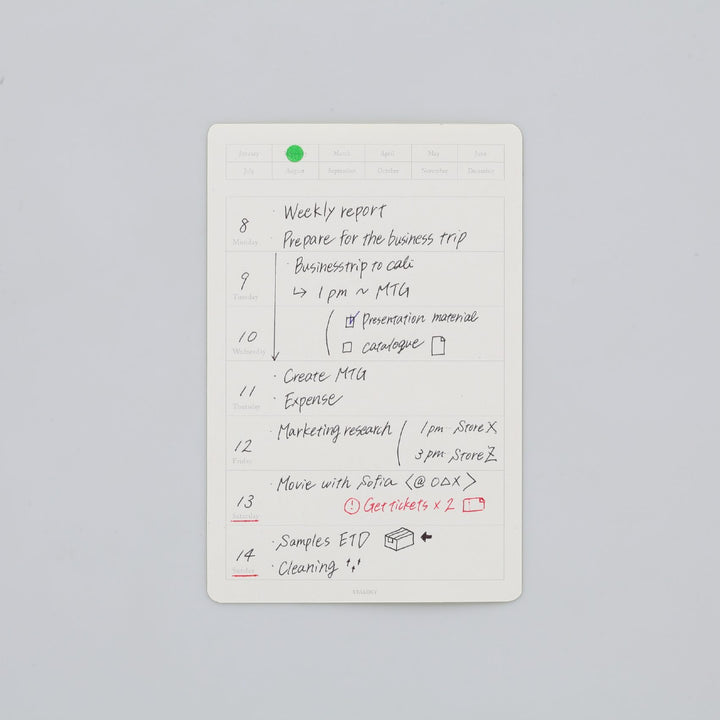 January March April May June
July August September October November December
8 Monday
· Weekly report
· Prepare for the business trip
9 Tuesday
· Businesstrip to cali
↳ 1 pm ~ MTG
10 Wednesday
☑ Presentation material
☐ catalogue
11 Thursday
· Create MTG
· Expense
12 Friday
· Marketing research ( 1 pm Store X
3 pm Store Z
13 Saturday
· Movie with Sofia <@ O△X>
! Get tickets x 2
14 Sunday
· Samples ETD
· Cleaning
STALOGY